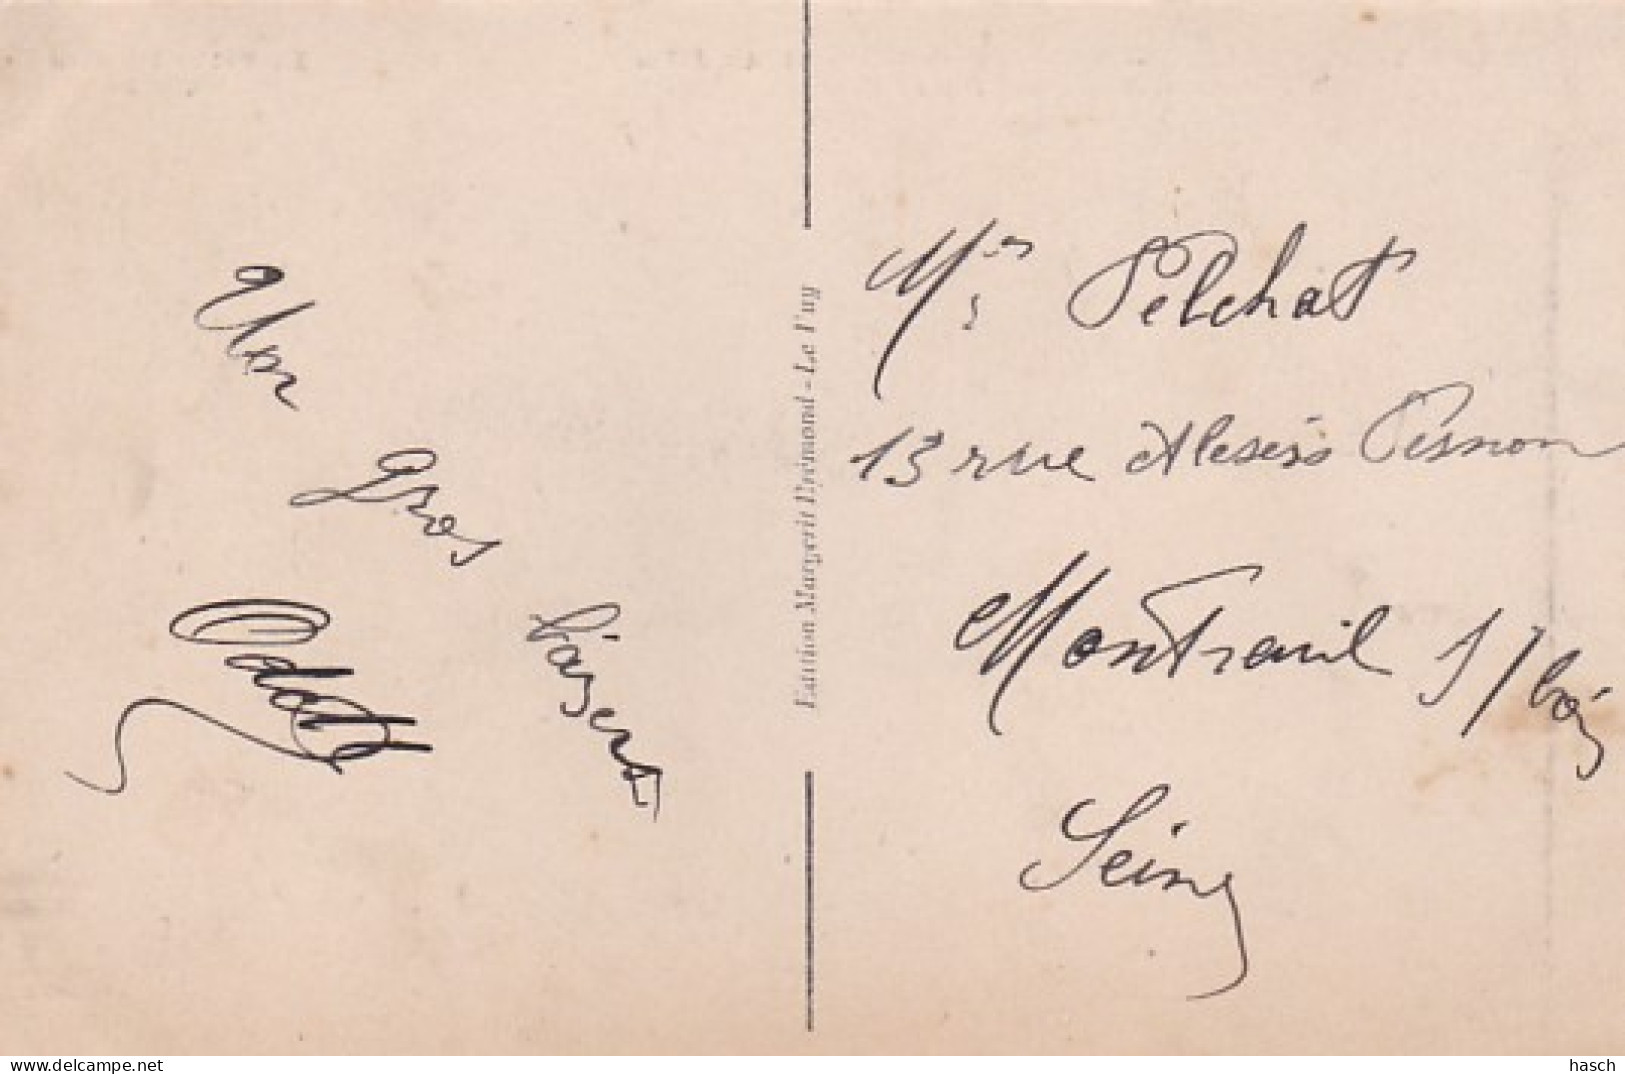 Un
gros
baiser
Odette
Edition Margerit Brémond - Le Puy
Mrs Pelchat
13 rue Alexis Pesnon
Montreuil s/ boi
Seine
delcampe.net
hasch